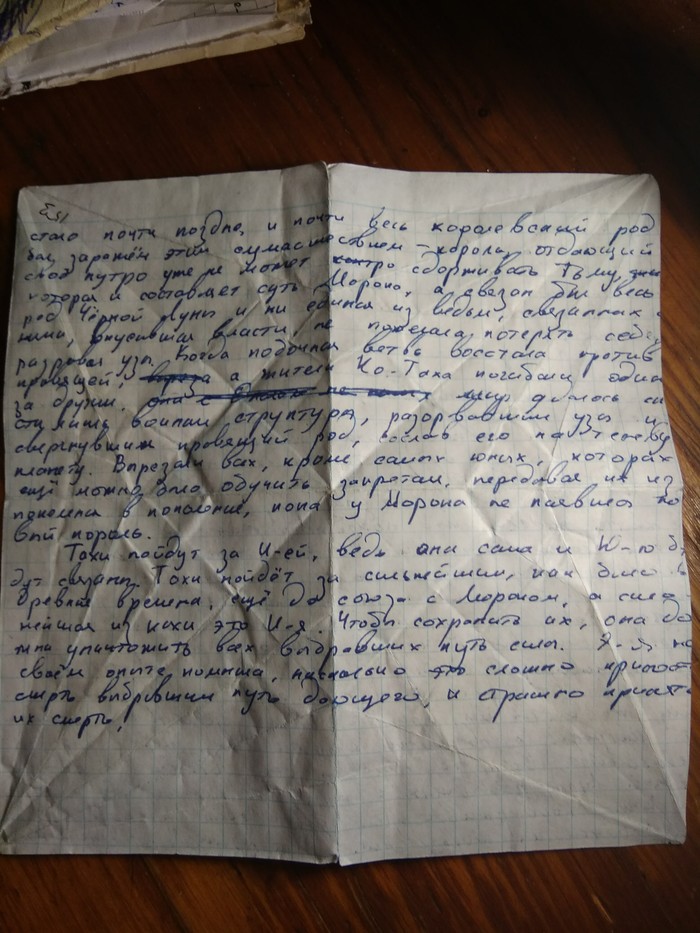 стало почти поздно, и почти весь королевский род
был заражён этим сумасшествием – король, отдающий
своё нутро уже не может сдерживать Тьму,
которая и составляет суть Морона, а связан был весь
род Чёрной Луны и ни единая из ведьм, связанных с
ними, вкусивши власти не пожелала потерять себе,
разорвав узы. Когда побочная ветвь восстала против
правящей, а жители Ко-Таха погибали один
за другим, удалось
лишь воинам структура, разорвавшим узы и
свергнувшим правящий род, сослав его на
планету. Вырезали всех, кроме самых юных, которых
ещё можно было обучить запретам, передавая их из
поколения в поколение, пока у Морона не появился но
вый король.
Тахи пойдут за И-ей, ведь она сама и Ю-ю бу
дут связаны. Тахи пойдёт за сильнейшим, как было в
древние времена, ещё до союза с Мороном, а силь
нейшая из кехи это И-я. Чтобы сохранить их, она до
жна уничтожить всех выбравших путь силы. Э-Я на
своём опыте помнила, насколько сложно
смерть выбравшим путь дающего, и страшно принять
их смерть.